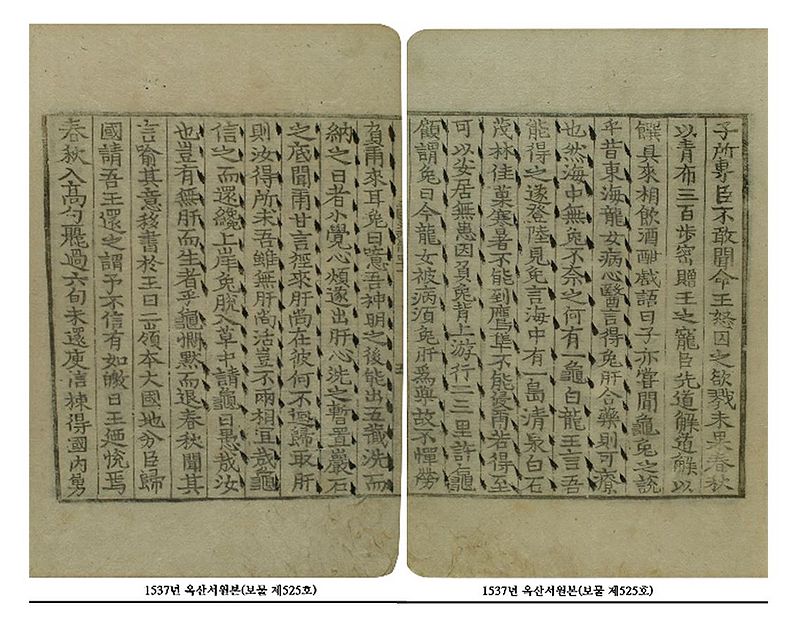 子所專臣不敢聞命王怒囚之欲戮未果春秋
以青布三百步密贈王之寵臣先道解道解以
饌具來相飲酒酣戱語曰子亦甞聞龜兔之說
乎昔東海龍女病心醫言得兔肝合藥則可療
也然海中無兔不奈之何有一龜白龍王言吾
能得之遂登陸見兔言海中有一島清泉白石
茂林佳菓寒暑不能到鷹隼不能侵爾若得至
可以安居無患因負兔背上游行二三里許龜
顧謂兔曰今龍女被病須兔肝爲藥故不憚勞
負爾來耳兔曰噫吾神明之後能出五藏洗而
納之日者小覺心煩遂出肝心洗之暫置巖石
之底聞爾甘言徑來肝尚在彼何不廻歸取肝
則汝得所求吾雖無肝尚活豈不兩相宜哉龜
信之而還纔上岸兔脫入草中謂龜曰愚哉汝
也豈有無肝而生者乎龜憫默而退春秋聞其
言喻其意移書於王曰二嶺本大國地分臣歸
國請吾王還之謂予不信有如皦日王迺悅焉
春秋入高句麗過六旬未還庾信揀得國內勇
1537년 옥산서원본(보물 제525호)
1537년 옥산서원본(보물 제525호)